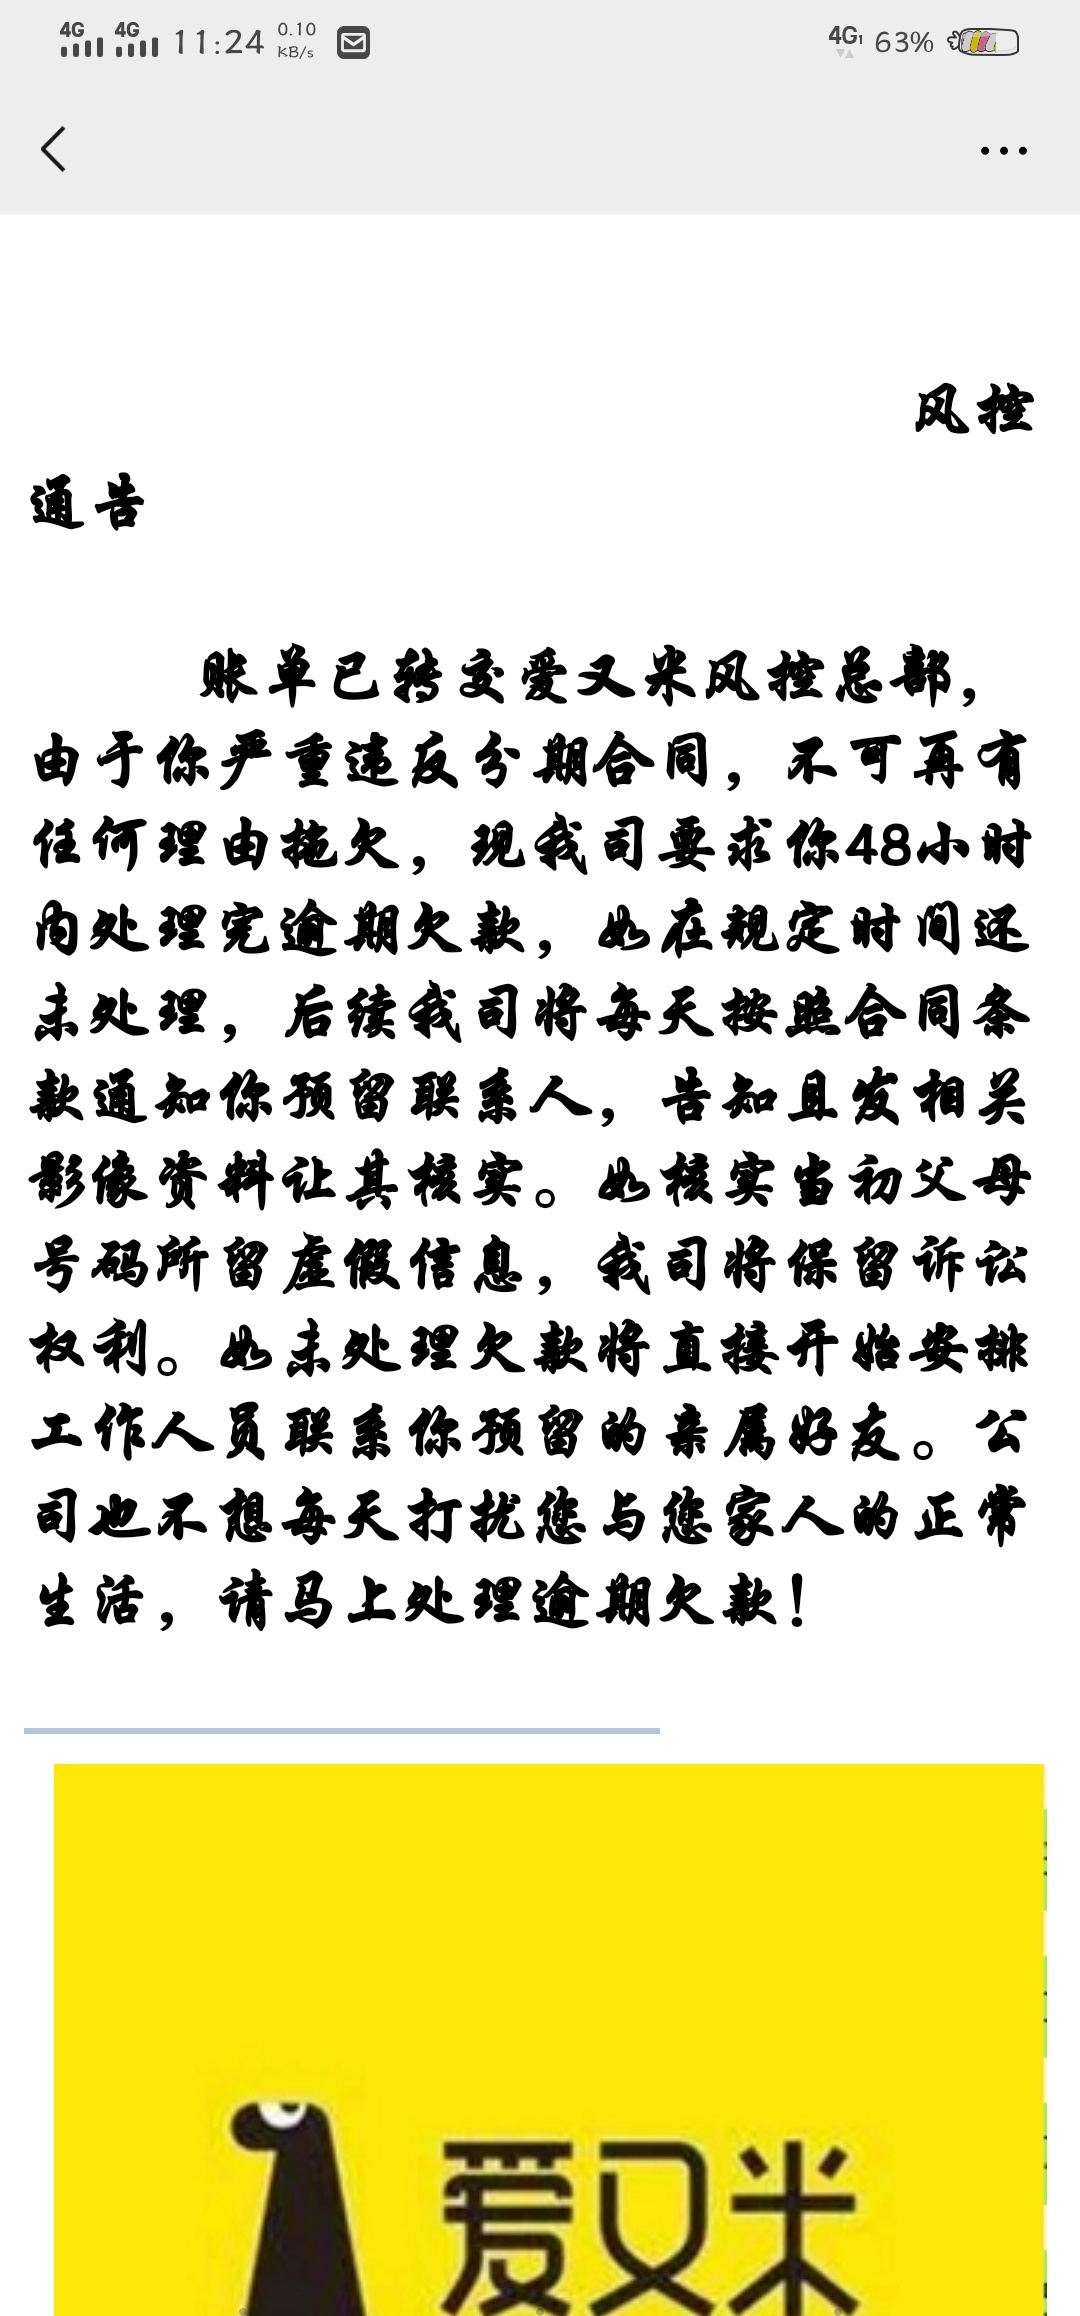 4G 4G 11:24 0.10 KB/s 4G1 63%
风控
通告
账单已转交爱又米风控总部，
由于你严重违反分期合同，不可再有
任何理由拖欠，现我司要求你48小时
内处理完逾期欠款，如在规定时间还
未处理，后续我司将每天按照合同条
款通知你预留联系人，告知且发相关
影像资料让其核实。如核实当初父母
号码所留虚假信息，我司将保留诉讼
权利。如未处理欠款将直接开始安排
工作人员联系你预留的亲属好友。公
司也不想每天打扰您与您家人的正常
生活，请马上处理逾期欠款！
爱又米